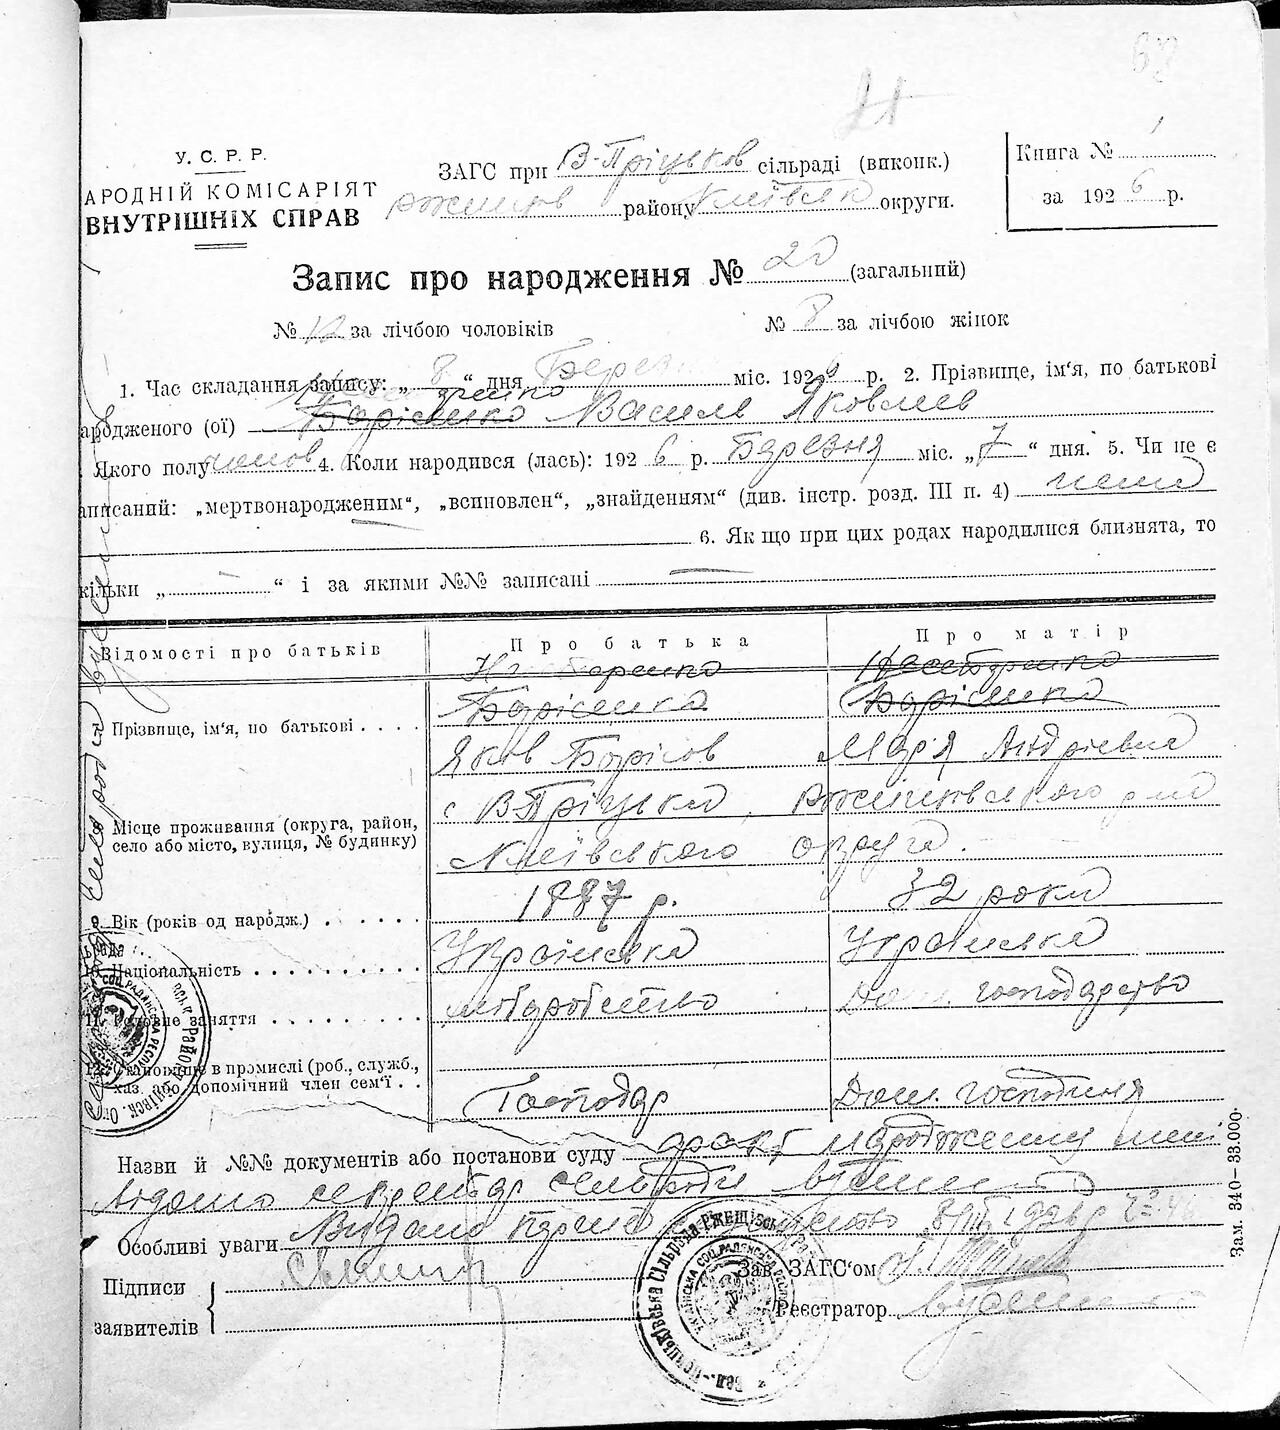 68
У. С. Р. Р.
АРОДНІЙ КОМІСАРІЯТ
ВНУТРІШНІХ СПРАВ
ЗАГС при В-Пріцьков сільраді (виконк.)
району Київськ округи.
Книга № 1
за 1926 р.
Запис про народження № 20 (загальний)
№ 12 за лічбою чоловіків
№ 8 за лічбою жінок
1. Час складання запису: „ 8 “ дня Березня міс. 1926 р. 2. Прізвище, ім'я, по батькові
ародженого (ої) Борісенко Василь Яковлев
Якого полу чолов 4. Коли народився (лась): 1926 р. Березня міс. „ 7 “ дня. 5. Чи не є
аписаний: „мертвонародженим“, „всиновлен“, „знайденням“ (див. інстр. розд. III п. 4) нема
6. Як що при цих родах народилися близнята, то
кільки „ — “ і за якими №№ записані —
Відомості про батьків
Про батька
Про матір
Нестеренко
Нестеренко
Борісенко
Борісенко
Прізвище, ім'я, по батькові . . . .
Яков Борісов
Марія Андріевна
Місце проживання (округа, район,
село або місто, вулиця, № будинку)
с В-Пріцьки, Ржищівського р-на
Київського округа.
9. Вік (років од народж.) . . . . . .
1887 р.
32 роки
10. Національність . . . . . . . . . .
Українська
Українка
11. Головне заняття . . . . . . . . .
хліборобство
Дом. господарство
12. Становище в промислі (роб., служб.,
хаз. або допомічний член сем'ї . .
Господар
Дом. господиня
Назви й №№ документів або постанови суду факт народження мені
відомо секретар сельради
Особливі уваги Видано
Підписи
заявителів
Зав. ЗАГС'ом
Реєстратор
Зам. 340-33.000.